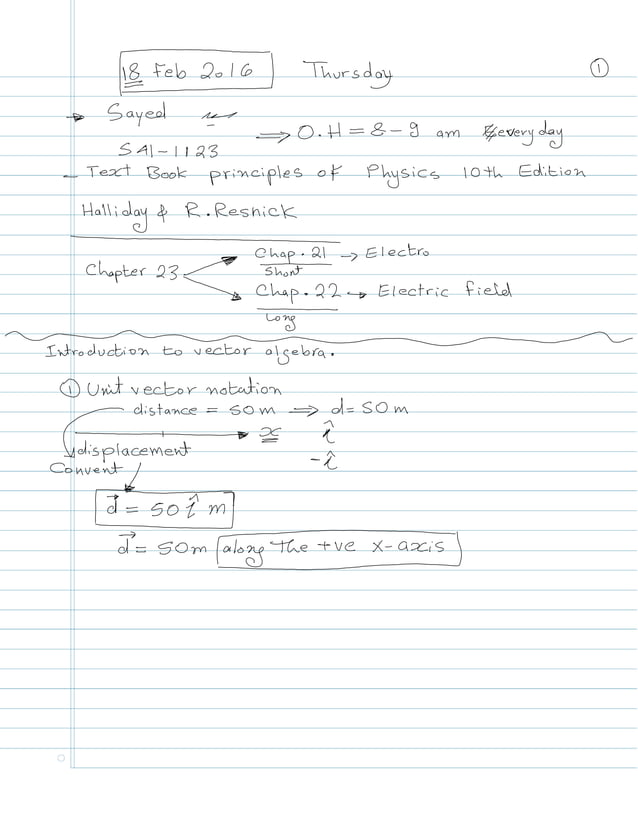 18 Feb 2016 Thursday ①
Sayed
⇒ O.H = 8 – 9 am everyday
SA1-1123
– Text Book principles of Physics 10th Edition
Halliday & R. Resnick
Chap. 21 → Electro
Short
Chapter 23
Chap. 22 → Electric field
Long
Introduction to vector algebra.
① Unit vector notation
distance = 50 m ⇒ d = 50 m
x î
displacement -î
Convent
d⃗ = 50 î m
d⃗ = 50m along the +ve x-axis